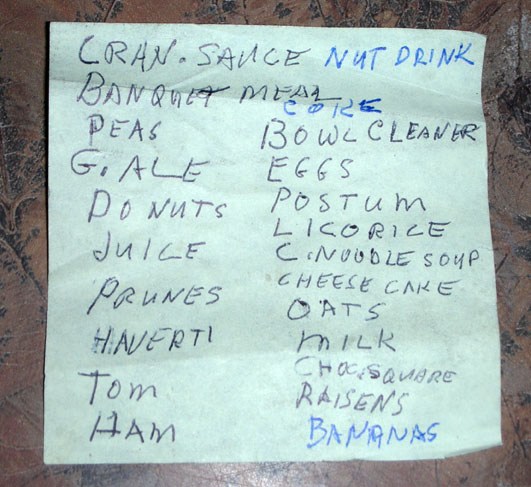 CRAN. SAUCE NUT DRINK
BANQUET MEAL
COKE
PEAS
BOWL CLEANER
G. ALE
EGGS
DONUTS
POSTUM
LICORICE
JUICE
C. NOODLE SOUP
PRUNES
CHEESE CAKE
OATS
HAVERTI
MILK
TOM
CHOC. SQUARE
RAISENS
HAM
BANANAS